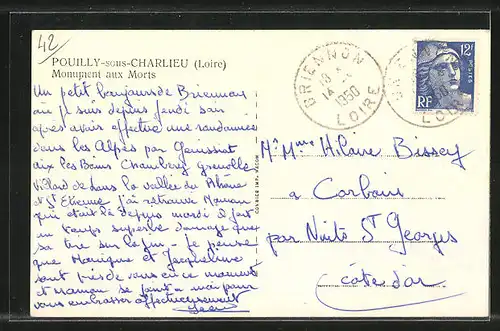 42
POUILLY-sous-CHARLIEU (Loire)
Monument aux Morts
Un petit bonjour de Briennon
où je suis depuis jeudi soir
après avoir effectué une randonnée
dans les Alpes par Génissiat
aix les Bains Chambéry grenoble
Villard de Lans la vallée du Rhône
et St Etienne j'ai retrouvé Maman
qui était là depuis mardi il fait
un temps superbe dommage que
sa tire sur la fin. Je pense
que Monique et Jacqueline
sont près de vous en ce moment
et Maman se joint a moi pour
vous embrasser affectueusement
BRIENNON
14
1950
LOIRE
12F
POSTES
RF
Mr Mme Hilaire Bissey
a Corboin
par Nuits St Georges
Côte d'or